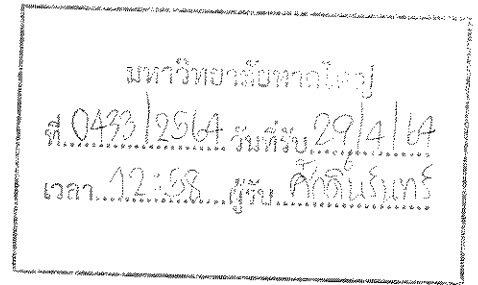 มหาวิทยาลัยหาดใหญ่
ที่ 0433/2564 วันที่รับ 29/4/64
เวลา 12:58 ผู้รับ ศักดินรินทร์